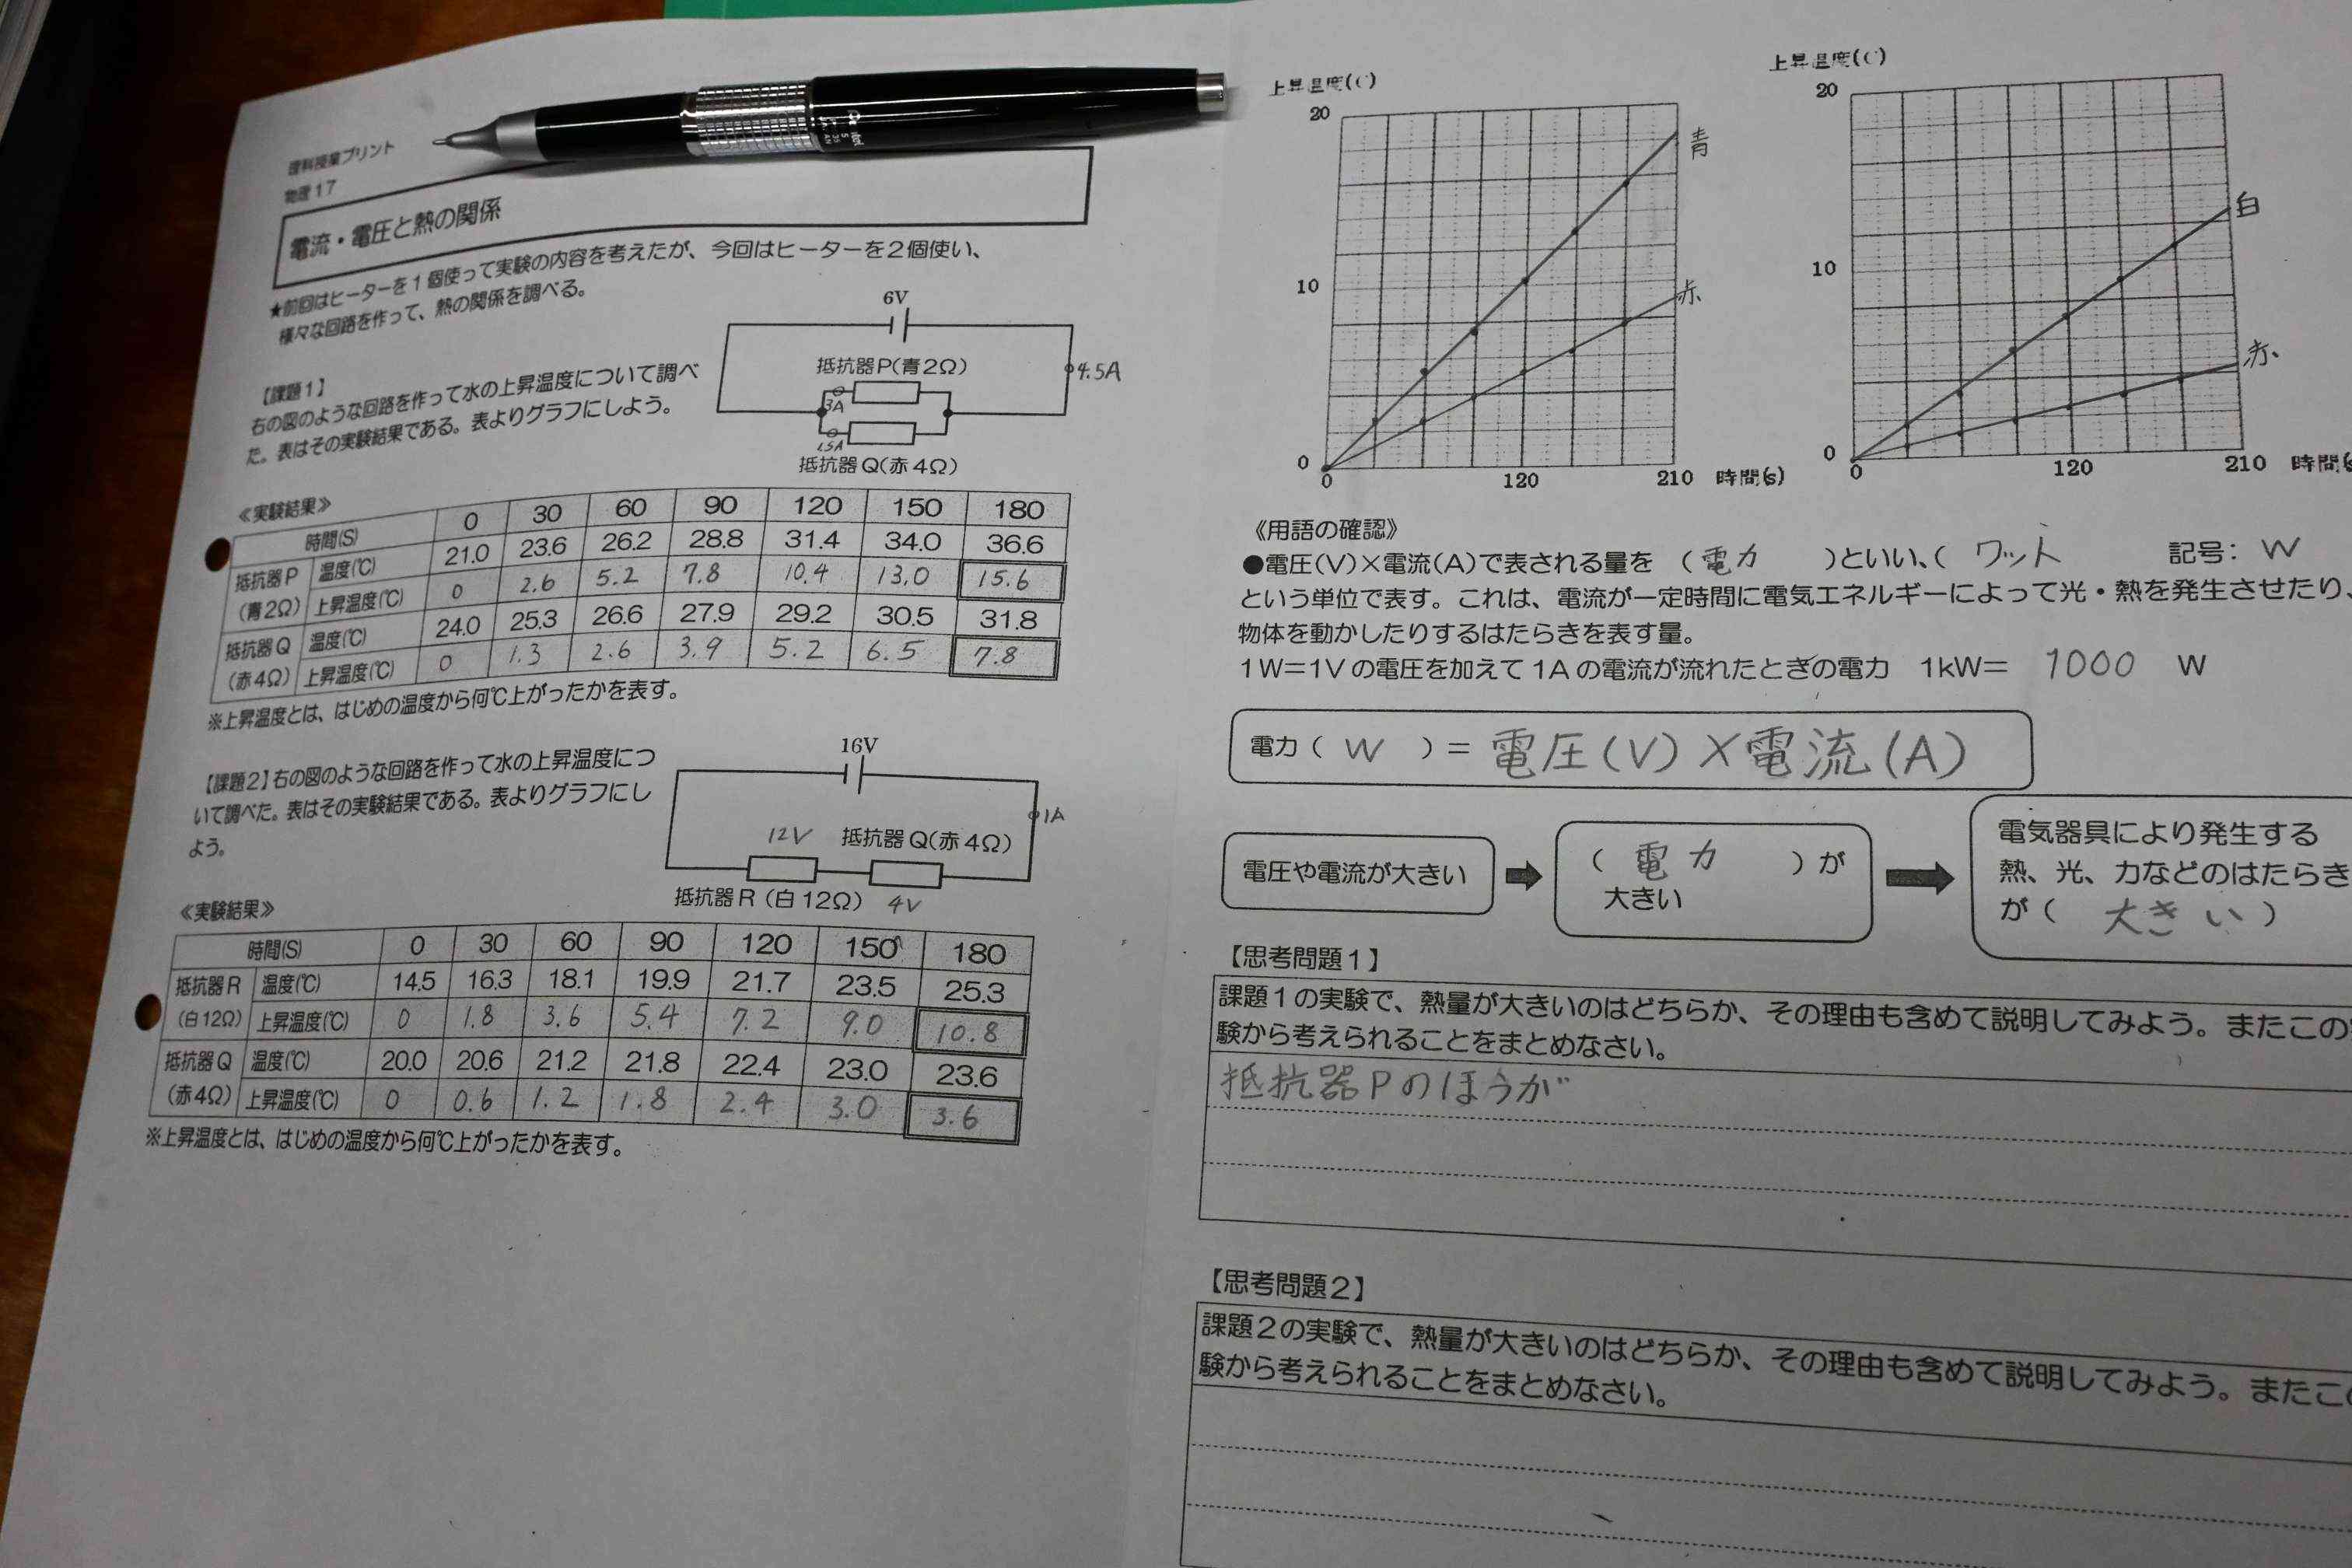 理科授業プリント
物理17
電流・電圧と熱の関係
★前回はヒーターを1個使って実験の内容を考えたが、今回はヒーターを2個使い、
様々な回路を作って、熱の関係を調べる。
【課題1】
右の図のような回路を作って水の上昇温度について調べ
た。表はその実験結果である。表よりグラフにしよう。
6V
抵抗器P(青2Ω)
4.5A
3A
1.5A
抵抗器Q(赤4Ω)
≪実験結果≫
時間(S) 0 30 60 90 120 150 180
抵抗器P (青2Ω) 温度(℃) 21.0 23.6 26.2 28.8 31.4 34.0 36.6
上昇温度(℃) 0 2.6 5.2 7.8 10.4 13.0 15.6
抵抗器Q (赤4Ω) 温度(℃) 24.0 25.3 26.6 27.9 29.2 30.5 31.8
上昇温度(℃) 0 1.3 2.6 3.9 5.2 6.5 7.8
※上昇温度とは、はじめの温度から何℃上がったかを表す。
【課題2】右の図のような回路を作って水の上昇温度につ
いて調べた。表はその実験結果である。表よりグラフにし
よう。
16V
1A
12V 抵抗器Q(赤4Ω)
抵抗器R(白12Ω) 4V
≪実験結果≫
時間(S) 0 30 60 90 120 150 180
抵抗器R (白12Ω) 温度(℃) 14.5 16.3 18.1 19.9 21.7 23.5 25.3
上昇温度(℃) 0 1.8 3.6 5.4 7.2 9.0 10.8
抵抗器Q (赤4Ω) 温度(℃) 20.0 20.6 21.2 21.8 22.4 23.0 23.6
上昇温度(℃) 0 0.6 1.2 1.8 2.4 3.0 3.6
※上昇温度とは、はじめの温度から何℃上がったかを表す。
上昇温度(C)
20
青
10
赤
0
0 120 210 時間(s)
上昇温度(C)
20
白
10
赤
0
0 120 210 時間(s
≪用語の確認≫
●電圧(V)×電流(A)で表される量を (電力 )といい、( ワット 記号: W
という単位で表す。これは、電流が一定時間に電気エネルギーによって光・熱を発生させたり、
物体を動かしたりするはたらきを表す量。
1W=1Vの電圧を加えて1Aの電流が流れたときの電力 1kW= 1000 W
電力( W )= 電圧(V)×電流(A)
電圧や電流が大きい
( 電力 )が
大きい
電気器具により発生する
熱、光、力などのはたらき
が( 大きい )
【思考問題1】
課題1の実験で、熱量が大きいのはどちらか、その理由も含めて説明してみよう。またこの
験から考えられることをまとめなさい。
抵抗器Pのほうが
【思考問題2】
課題2の実験で、熱量が大きいのはどちらか、その理由も含めて説明してみよう。またこ
験から考えられることをまとめなさい。